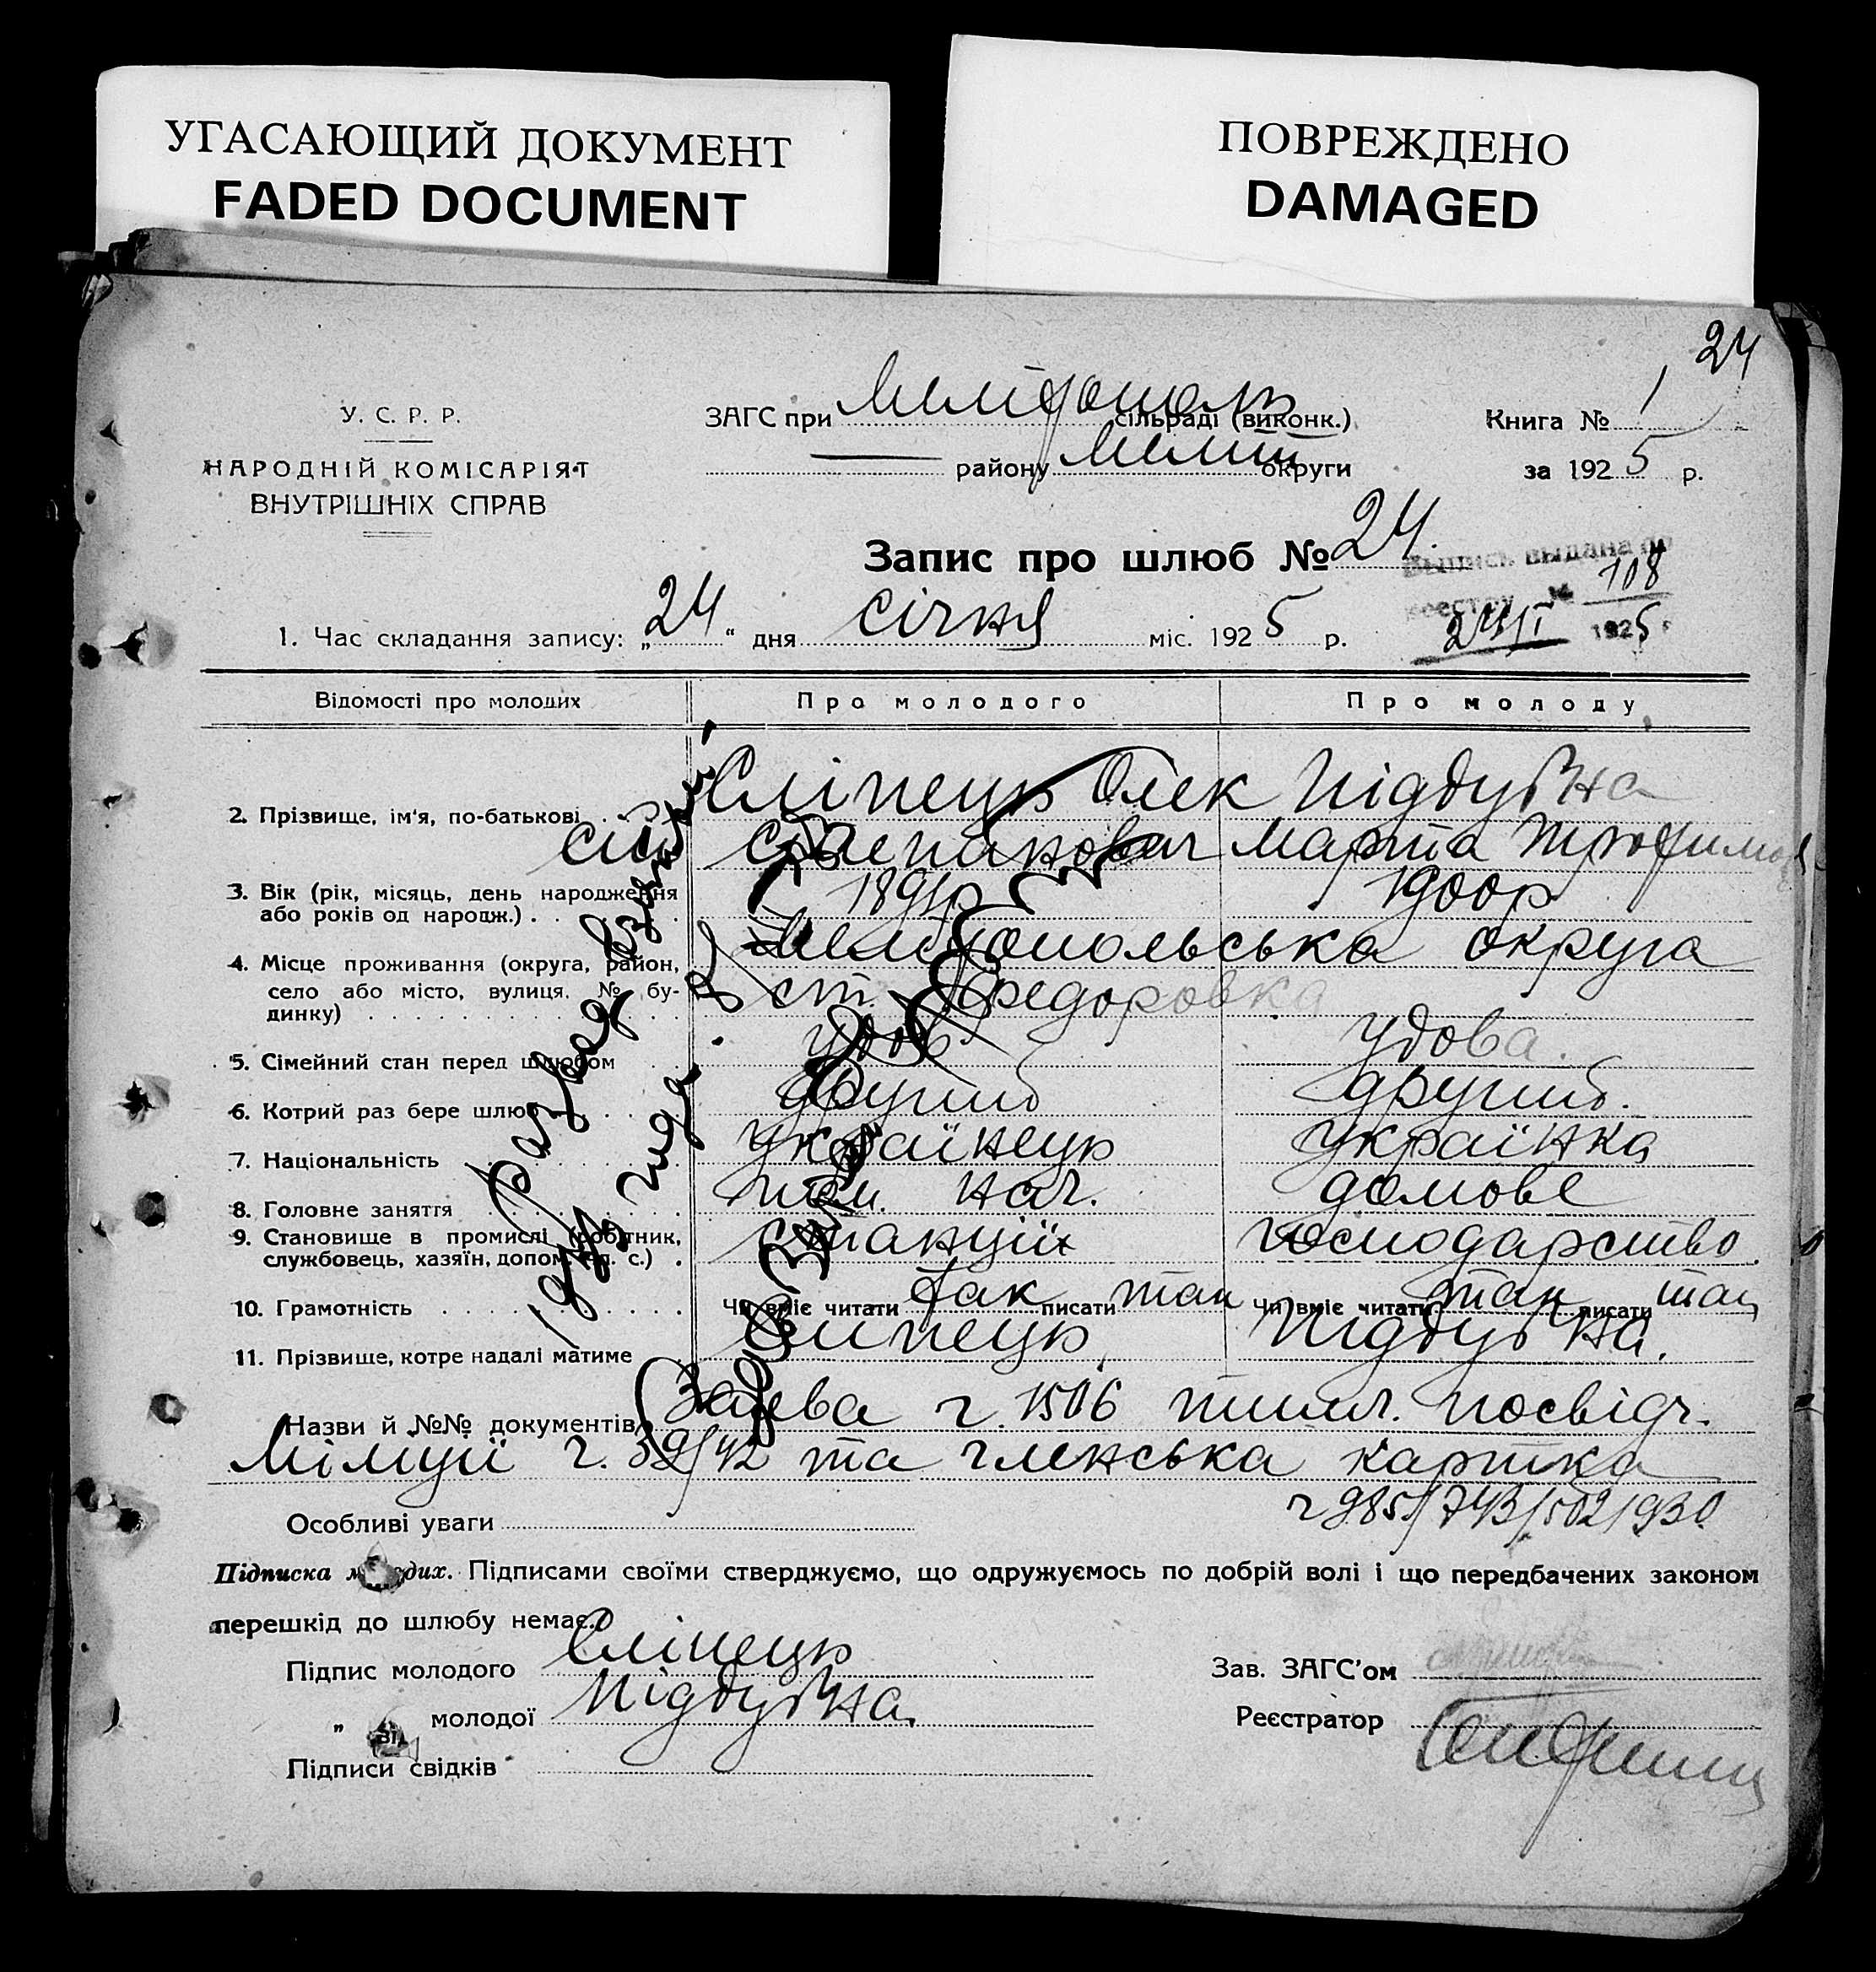 УГАСАЮЩИЙ ДОКУМЕНТ
FADED DOCUMENT
ПОВРЕЖДЕНО
DAMAGED
24
У. С. Р. Р.
НАРОДНІЙ КОМІСАРІЯТ
ВНУТРІШНІХ СПРАВ
ЗАГС при Мелітополь сільраді (виконк.)
— району Меліт округи
Книга № 1
за 1925 р.
Запис про шлюб № 24.
Выпись выдана по
реестру № 108
24/I 1925 г
1. Час складання запису: „24“ дня січня міс. 1925 р.
Відомості про молодих
Про молодого
Про молоду
2. Прізвище, ім'я, по-батькові
Сліпець Олек
Степанович
Піддубна
Марта Трофимов
3. Вік (рік, місяць, день народження
або років од народж.)
1891р
1900р
4. Місце проживання (округа, район,
село або місто, вулиця, № бу-
динку)
Мелітопольська округа
ст. Федоровка
5. Сімейний стан перед шлюбом
удов
удова.
6. Котрий раз бере шлюб
другий
другий.
7. Національність
українець
українка
8. Головне заняття
9. Становище в промислі (робітник,
службовець, хазяїн, допом. чл. с.)
пом. нач.
станції
домове
господарство
10. Грамотність
Чи вміє читати так писати так
Чи вміє читати так писати так
11. Прізвище, котре надалі матиме
Сліпець
Піддубна.
Назви й №№ документів
Заява ч. 1506 посвідч.
Міліції ч. 39/42 та членська картка
ч 985/743/502/930
Особливі уваги
Підписка молодих. Підписами своїми стверджуємо, що одружуємось по добрій волі і що передбачених законом
перешкід до шлюбу немає.
Підпис молодого Сліпець
„ молодої Піддубна
Підписи свідків
Зав. ЗАГС'ом
Реєстратор